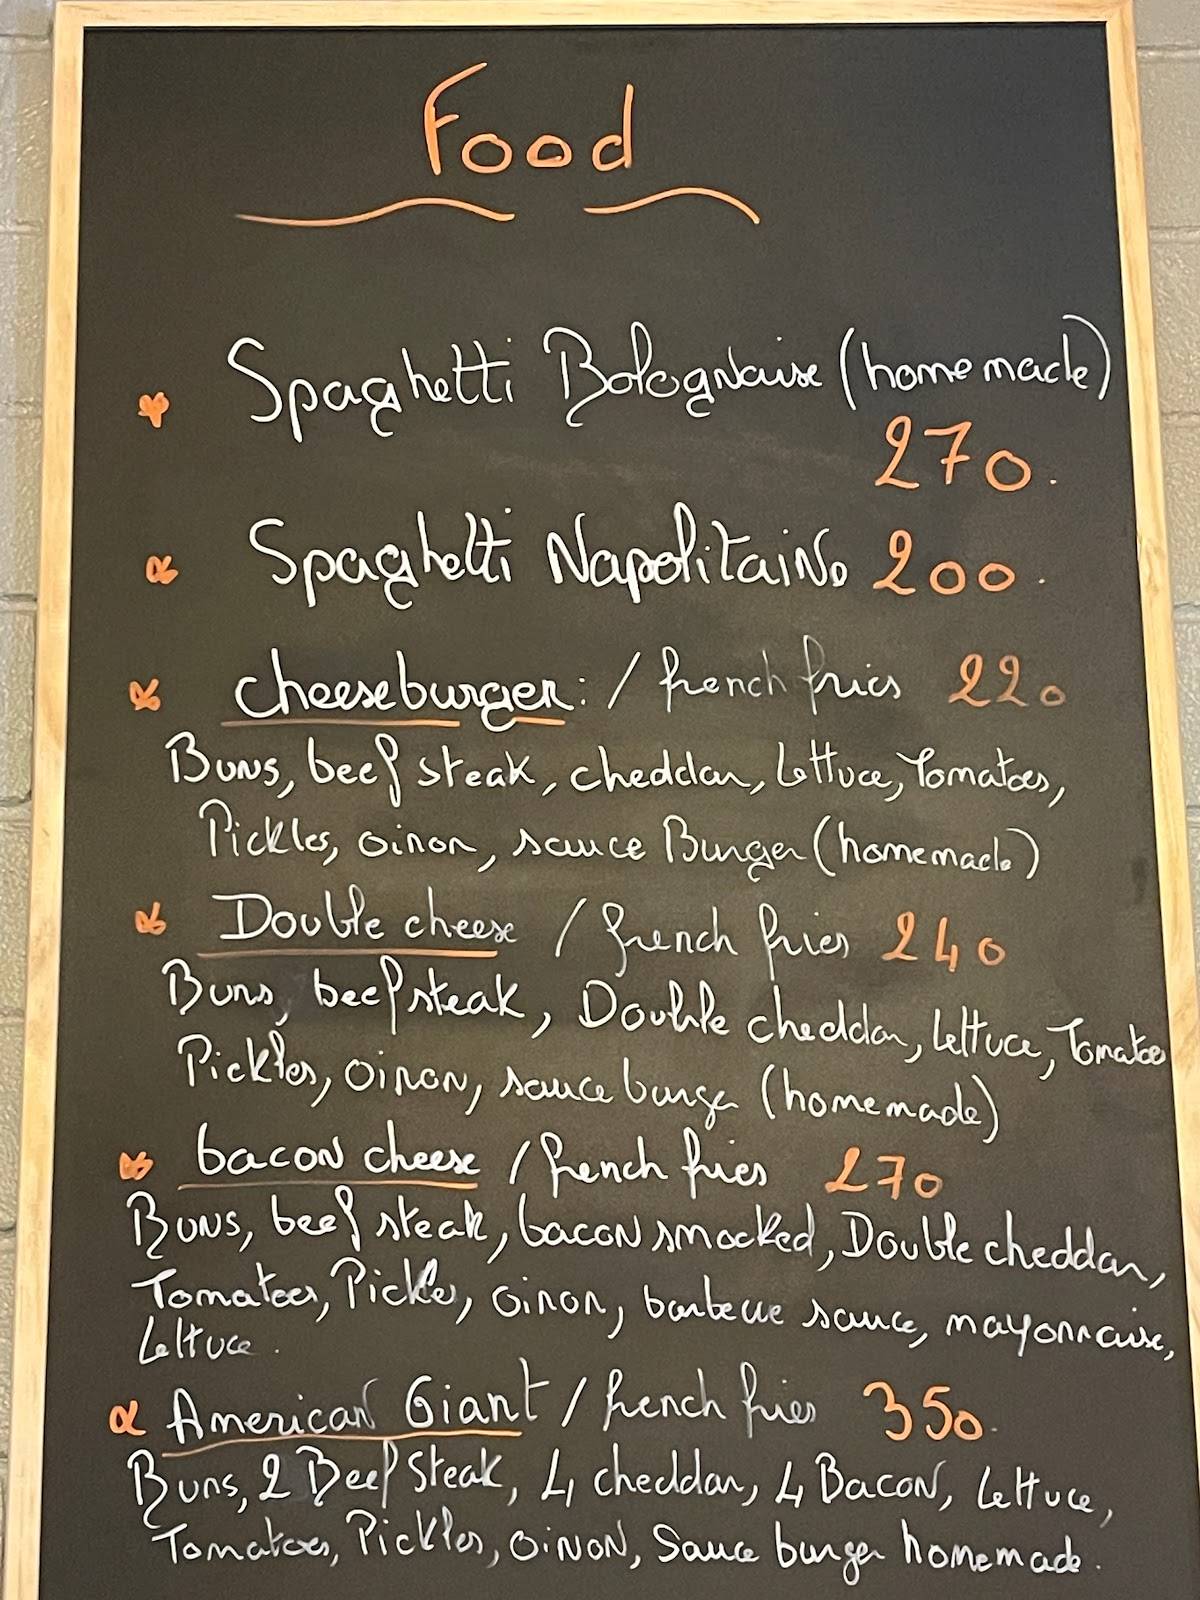 Food
Spaghetti Bolognaise (homemade)
270.
Spaghetti Napolitaino 200.
cheeseburger: / french fries 220
Buns, beef steak, cheddar, lettuce, Tomatoes,
Pickles, oinon, sauce Burger (homemade)
Double cheese / french fries 240
Buns, beef steak, Double cheddar, lettuce, Tomatoes
Pickles, oinon, sauce burger (homemade)
bacon cheese / french fries 270
Buns, beef steak, bacon smocked, Double cheddar,
Tomatoes, Pickles, oinon, barbecue sauce, mayonnaise,
lettuce.
American Giant / french fries 350.
Buns, 2 Beef Steak, 4 cheddar, 4 Bacon, lettuce,
Tomatoes, Pickles, oinon, Sauce burger homemade.